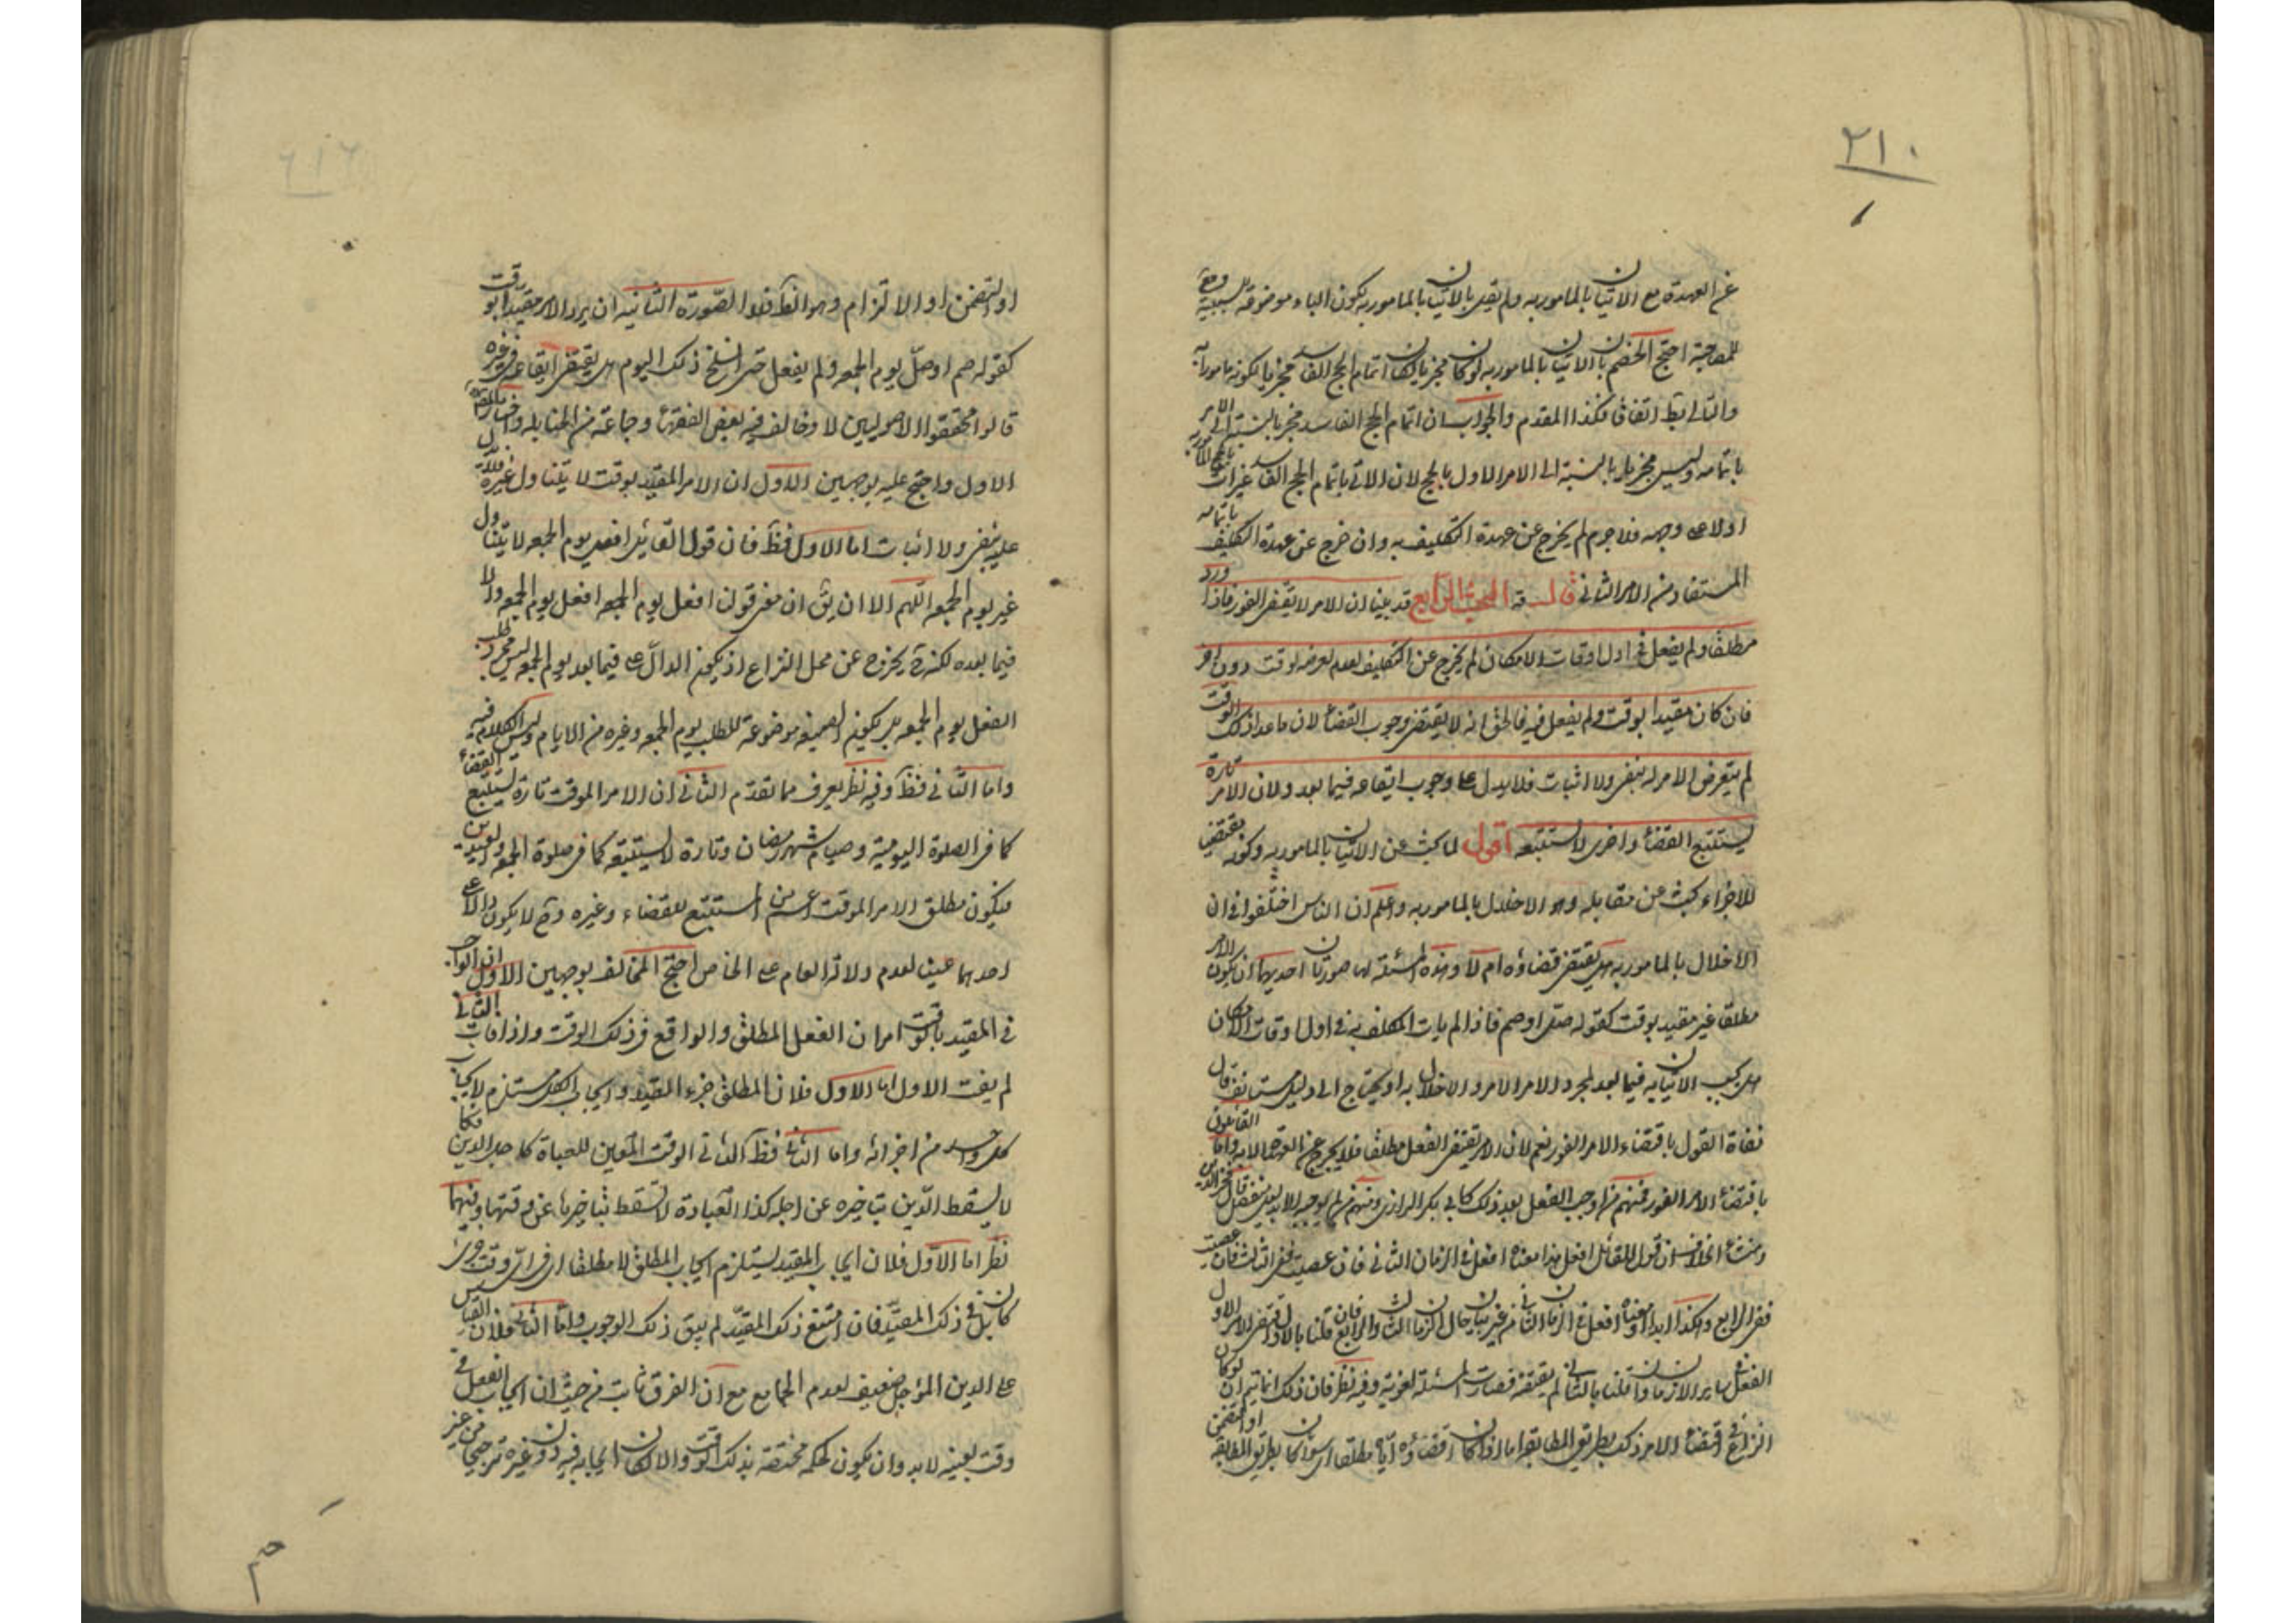 ٢١٠
عن العهدة مع الاتيان بالمامور به ولم يقل بالاتيان بالمامور به لكون الباء موضوعة للسببية وهو
للمصاحبة احتج الخصم بان الاتيان بالمامور به لو كان مجزيا لكان اتمام الحج الفاسد مجزيا لكونه مامورا به
والتالى بط اتفاقا فكذا المقدم والجواب ان اتمام الحج الفاسد مجز بالنسبة الى الامر
باتمامه وليس مجزيا بالنسبة الى الامر الاول بالحج لان الاتى باتمام الحج الفاسد غير ات بالحج المامور به
اولا على وجهه فلا جرم لم يخرج عن عهدة التكليف به وان خرج عن عهدة التكليف باتمامه
المستفاد من الامر الثانى قال قه البحث الرابع قد بينا ان الامر لا يقتضى الفور فاذا ورد
مطلقا ولم يفعل فى اول اوقات الامكان لم يخرج عن التكليف لعدم تعرضه لوقت دون اخر
فان كان مقيدا بوقت ولم يفعل فيه فالحق انه لا يقتضى وجوب القضاء لان ما عدا ذلك الوقت
لم يتعرض الامر له بنفى ولا اثبات فلا يدل على وجوب ايقاعه فيما بعد ولان الامر تارة
يستتبع القضاء واخرى لا يستتبعه اقول لما بحث عن الاتيان بالمامور به وكونه يقتضى
للاجزاء بحث عن مقابله وهو الاخلال بالمامور به واعلم ان الناس اختلفوا فى ان
الاخلال بالمامور به هل يقتضى قضاؤه ام لا وهذه المسئلة لها صورتان احديهما ان يكون الامر
مطلقا غير مقيد بوقت كقوله صل او صم فاذا لم يات المكلف به فى اول اوقات الامكان
هل يجب الاتيان به فيما بعد لمجرد الامر الامر والاخلال به او يحتاج الى دليل مستانف قال
نفاة القول باقتضاء الامر الفور نعم لان الامر يقتضى الفعل مطلقا فلا يخرج عن العهدة الا به واما القائلون
باقتضاء الامر الفور فمنهم من اوجب الفعل بعد ذلك كابى بكر الرازى ومنهم من لم يوجبه الا بدليل منفصل قال فخر الدين
ومنشاء الخلاف ان قول القائل افعل هذا معناه افعل فى الزمان الثانى فان عصيت ففى الثالث فان عصيت
ففى الرابع وهكذا ابدا او معناه افعل فى الزمان الثانى من غير بيان حال الزمان الثالث والرابع فان قلنا بالاول اقتضى الامر الاول
الفعل فى ساير الازمان وان قلنا بالثانى لم يقتضه فصارت المسئلة لغوية وفيه نظر فان ذلك انما يتم ان لو كان
النزاع فى اقتضاء الامر ذلك بطريق المطابقة اما اذا كان اقتضاؤه اياه مطلقا اى سواء كان بطريق المطابقة او التضمن
او التضمن او الالتزام وهو الظ فلا الصورة الثانية ان يرد الامر مقيدا بوقت
كقوله صم او صل يوم الجمعه ولم يفعل حتى انسلخ ذلك اليوم هل يقتضى ايقاعه فى غيره
قالوا محققوا الاصوليين لا وخالف فيه بعض الفقهاء وجماعة من الحنابلة واختار المص
الاول واحتج عليه بوجهين الاول ان الامر المقيد بوقت لا يتناول غيره فلا يدل
عليه بنفى ولا اثبات اما الاول فظ فان قول القائل افعل يوم الجمعه لا يتناول
غير يوم الجمعه اللهم الا ان يق ان معنى قولنا افعل يوم الجمعه افعل يوم الجمعه والا
فيما بعده لكنه ح يخرج عن محل النزاع اذ يكون الدال على فيما بعد يوم الجمعه ليس مجرد طلب
الفعل يوم الجمعه بل يكون الصيغه موضوعة للطلب يوم الجمعه وغيره من الايام وليس الكلام فيه
واما الثانى فظ وفيه نظر يعرف مما تقدم الثانى ان الامر الموقت تارة يستتبع القضاء
كما فى الصلوة اليومية وصيام شهر رمضان وتارة لا يستتبعه كما فى صلوة الجمعه والعيدين
فيكون مطلق الامر الموقت اعم من المستتبع للقضاء وغيره وح لا يكون دالا على
احدهما عينا لعدم دلالة العام على الخاص احتج المخالف بوجهين الاول ان الواجب
فى المقيد بالوقت امران الفعل المطلق والواقع فى ذلك الوقت واذا فات الثانى
لم يفت الاول اما الاول فلان المطلق جزء المقيد وايجاب الكل مستلزم لايجاب
كل واحد من اجزائه واما الثانى فظ الثانى الوقت المعين للعبادة كاجل الدين فكما
لا يسقط الدين بتاخيره عن اجله كذا العبادة لا تسقط بتاخيرها عن وقتها وفيهما
نظر اما الاول فلان ايجاب المقيد يستلزم ايجاب المطلق لا مطلقا اى فى اى وقت
كان بل فى ذلك المقيد فان امتنع ذلك المقيد لم يبق ذلك الوجوب واما الثانى فلان القياس
على الدين المؤجل ضعيف لعدم الجامع مع ان الفرق ثابت من حيث ان ايجاب الفعل فى
وقت بعينه لا بد وان يكون لحكمه مختصة بذلك الوقت والا لكان ايجابه فيه دون غيره ترجيحا من غير